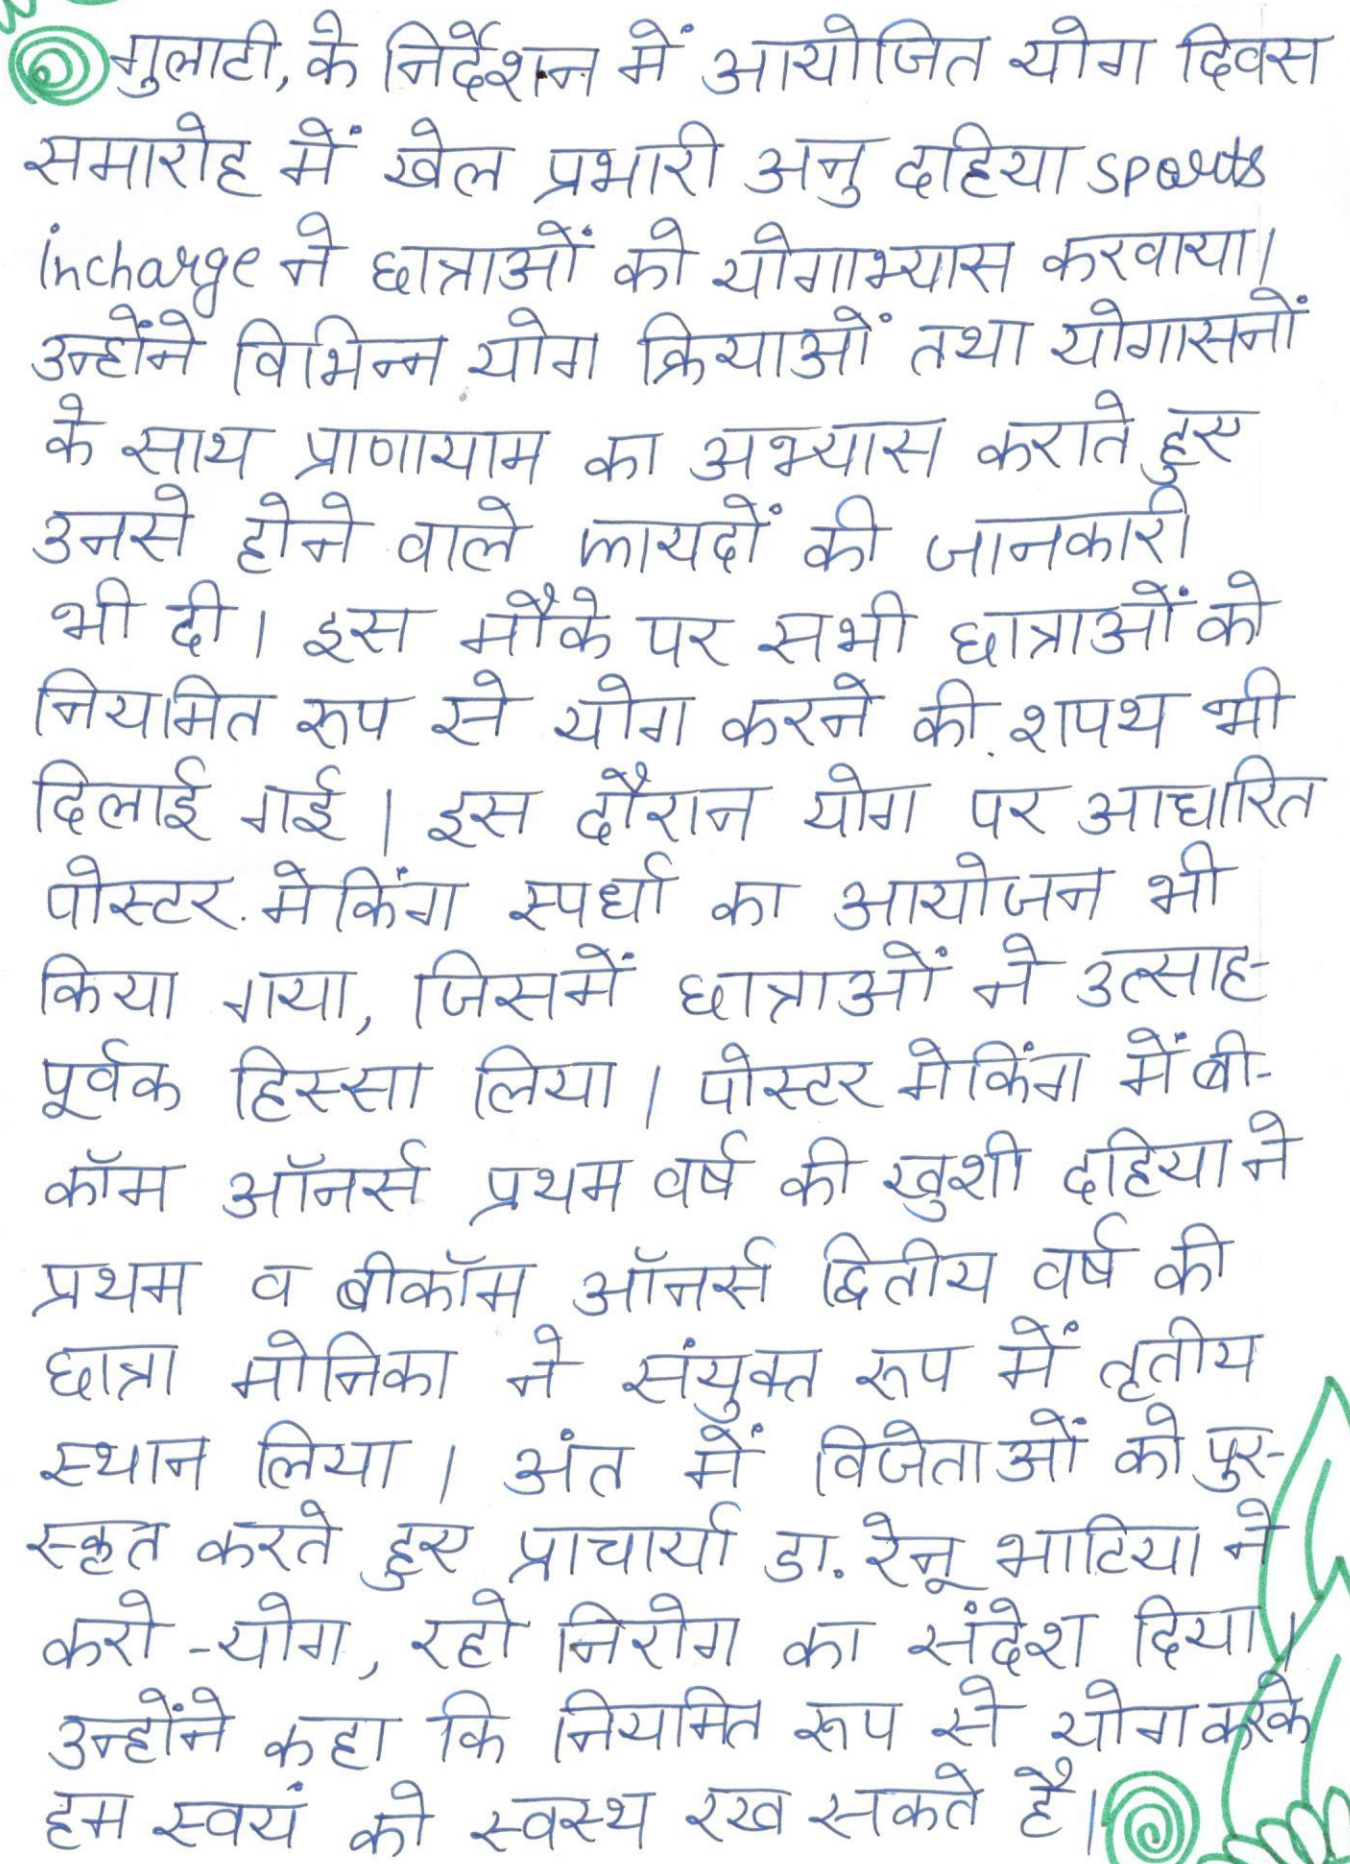 गुलाटी, के निर्देशन में आयोजित योग दिवस
समारोह में खेल प्रभारी अनु दहिया sports
incharge ने छात्राओं को योगाभ्यास करवाया।
उन्होंने विभिन्न योग क्रियाओं तथा योगासनों
के साथ प्राणायाम का अभ्यास कराते हुए
उनसे होने वाले फायदों की जानकारी
भी दी। इस मौके पर सभी छात्राओं को
नियमित रूप से योग करने की शपथ भी
दिलाई गई। इस दौरान योग पर आधारित
पोस्टर मेकिंग स्पर्धा का आयोजन भी
किया गया, जिसमें छात्राओं ने उत्साह-
पूर्वक हिस्सा लिया। पोस्टर मेकिंग में बी-
कॉम ऑनर्स प्रथम वर्ष की खुशी दहिया ने
प्रथम व बीकॉम ऑनर्स द्वितीय वर्ष की
छात्रा मोनिका ने संयुक्त रूप में तृतीय
स्थान लिया। अंत में विजेताओं को पुर-
स्कृत करते हुए प्राचार्या डा. रेनू भाटिया ने
करो -योग, रहो निरोग का संदेश दिया।
उन्होंने कहा कि नियमित रूप से योग करके
हम स्वयं को स्वस्थ रख सकते है।